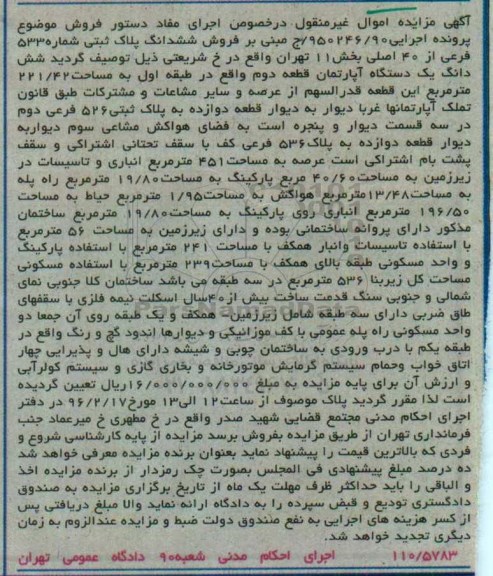 آگهی مزایده اموال غیرمنقول درخصوص اجرای مفاد دستور فروش موضوع
پرونده اجرایی۹۵۰۲۴۶/۹۰/ج مبنی بر فروش ششدانگ پلاک ثبتی شماره۵۳۳
فرعی از ۴۰ اصلی بخش۱۱ تهران واقع در خ شریعتی ذیل توصیف گردید شش
دانگ یک دستگاه آپارتمان قطعه دوم واقع در طبقه اول به مساحت۲۲۱/۴۲
مترمربع این قطعه قدرالسهم از عرصه و سایر مشاعات و مشترکات طبق قانون
تملک آپارتمانها غربا دیوار به دیوار قطعه دوازده به پلاک ثبتی۵۲۶ فرعی دوم
در سه قسمت دیوار و پنجره است به فضای هواکش مشاعی سوم دیواربه
دیوار قطعه دوازده به پلاک۵۳۶ فرعی کف با سقف تحتانی اشتراکی و سقف
پشت بام اشتراکی است عرصه به مساحت۴۵۱ مترمربع انباری و تاسیسات در
زیرزمین به مساحت۴۰/۶۰ مربع پارکینگ به مساحت۱۹/۸۰ مترمربع راه پله
به مساحت۱۳/۴۸مترمربع هواکش به مساحت۱/۹۵ مترمربع حیاط به مساحت
۱۹۶/۵۰ مترمربع انباری روی پارکینگ به مساحت۱۹/۸۰ مترمربع ساختمان
مذکور دارای پروانه ساختمانی بوده و دارای زیرزمین به مساحت ۵۶ مترمربع
با استفاده تاسیسات وانبار همکف با مساحت ۲۴۱ مترمربع با استفاده پارکینگ
و واحد مسکونی طبقه بالای همکف با مساحت۲۳۹ مترمربع با استفاده مسکونی
مساحت کل زیربنا ۵۳۶ مترمربع در سه طبقه می باشد ساختمان کلا جنوبی نمای
شمالی و جنوبی سنگ قدمت ساخت بیش از۴۰سال اسکلت نیمه فلزی با سقفهای
طاق ضربی دارای سه طبقه شامل زیرزمین همکف و یک طبقه روی آن جمعا دو
واحد مسکونی راه پله عمومی با کف موزائیکی و دیوارها اندود گچ و رنگ واقع در
طبقه یکم با درب ورودی به ساختمان چوبی و شیشه دارای هال و پذیرایی چهار
اتاق خواب وحمام سیستم گرمایش موتورخانه و بخاری گازی و سیستم کولرآبی
و ارزش آن برای پایه مزایده به مبلغ ۱۶/۰۰۰/۰۰۰/۰۰۰ریال تعیین گردیده
است لذا مقرر گردید پلاک موصوف از ساعت۱۲ الی۱۳ مورخ۹۶/۲/۱۷ در دفتر
اجرای احکام مدنی مجتمع قضایی شهید صدر واقع در خ مطهری خ میرعماد جنب
فرمانداری تهران از طریق مزایده بفروش برسد مزایده از پایه کارشناسی شروع و
فردی که بالاترین قیمت را پیشنهاد نماید بعنوان برنده مزایده معرفی خواهد شد
ده درصد مبلغ پیشنهادی فی المجلس بصورت چک رمزدار از برنده مزایده اخذ
و الباقی را باید حداکثر ظرف مهلت یک ماه از تاریخ برگزاری مزایده به صندوق
دادگستری تودیع و قبض سپرده را به دادگاه ارائه نماید والا مبلغ دریافتی پس
از کسر هزینه های اجرایی به نفع صندوق دولت ضبط و مزایده عندالزوم به زمان
دیگری تجدید خواهد شد.
۱۱۰/۵۷۸۳ اجرای احکام مدنی شعبه۹۰ دادگاه عمومی تهران